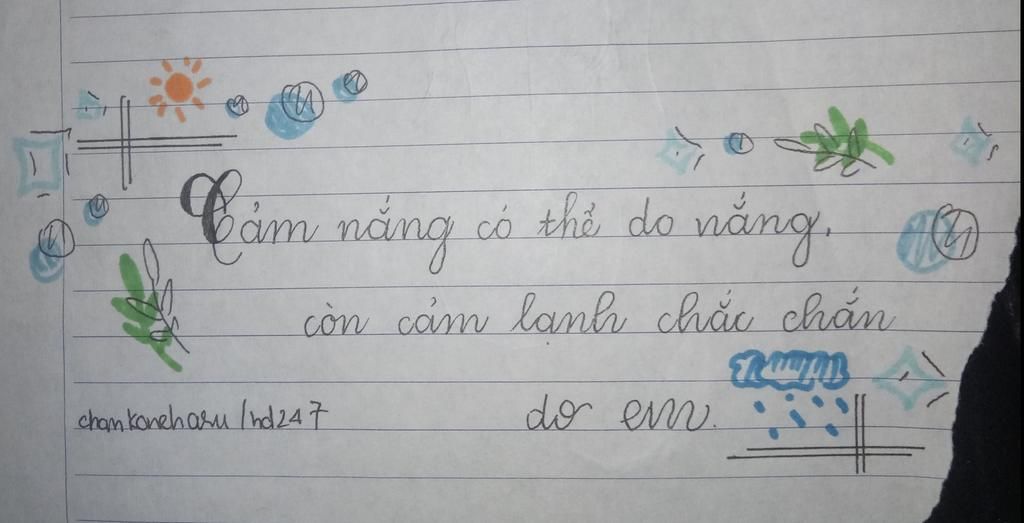 Cảm nắng có thể do nắng.
còn cảm lạnh chắc chắn
do em.
chamkoneharu/nd247